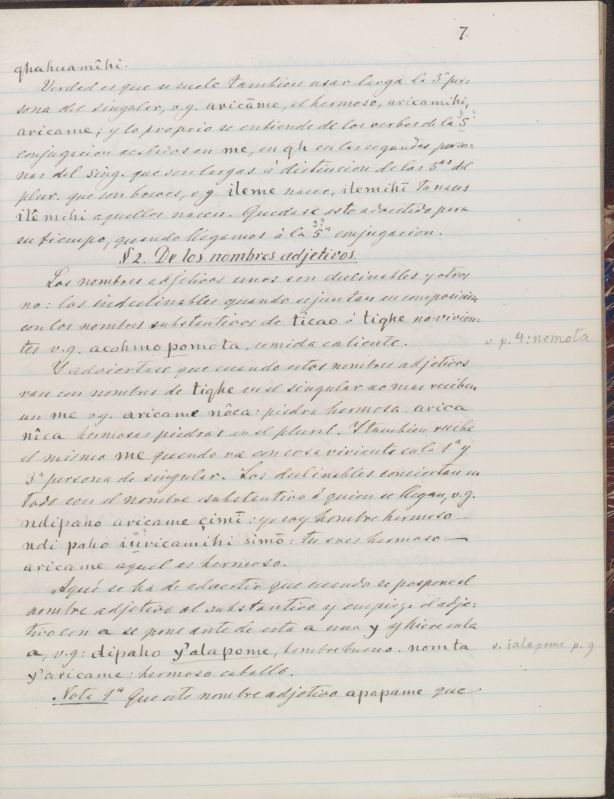 7.
qhahuamîhi.
Verdad es que se suele tambien usar larga la 3ª per-
sona del singular, v.g. aricāme, el hermoso, aricamihi,
aricame; y lo proprio se entiende de los verbos de la 5ª
conjugacion acabados en me, en qh en las segundas perso-
nas del sing. que son largas à distincion de las 3ªs del
plur. que son breves, v.g. ileme nacer, ilemihī tu naces
ilêmihi aquellos nacen. Quedase esto advertido para
su tiempo, quando llegamos à la 5ª conjugacion.
§ 2. De los nombres adjetivos.
Los nombres adjetivos unos son declinables y otros
no: los indeclinables quando se juntan en composicion
con los nombres substantivos de ticao ò tighe no vivien-
tes v.g. acohmo pomota, comida caliente.
v p. 4: nomota
Y adviertase que cuando estos nombres adjetivos
van con nombres de tighe en el singular no mas reciben
un me v.g. aricame nôca: piedra hermosa. arica
nîca hermosas piedras en el plural. Y tambien recibe
el mismo me quando va con cosa viviente en la 1ª y
3ª persona de singular. Los declinables conciertan en
todo con el nombre substantivo à quien se llegan, v.g.
ndipaho aricame çimī: yo soy hombre hermoso —
ndi paho iüricamihi simō: tu eres hermoso —
aricame aquel es hermoso.
Aqui se ha de advertir que cuando se pospone el
nombre adjetivo al substantivo y empieza el adje-
tivo con a se pone ante de esta a una y y hiere en la
a, v.g: dipaho y'alapome, hombre bueno. nomta
v. ialapome p. 9
y'aricame: hermoso caballo.
Nota 1ª Que este nombre adjetivo apapame que